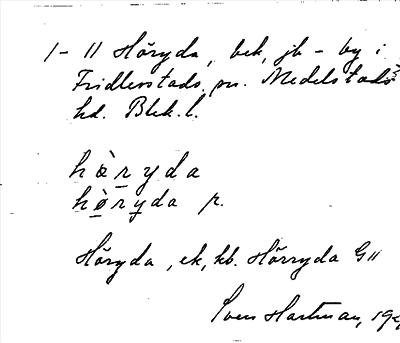 1-11 Höryda, bek, jb - by i
Fridlevstads sn. Medelstads
hd. Blek. l.
hὰryda
hὸryda p.
Höryda, ek, kb. Hörryda G11
Sven Hartman, 19